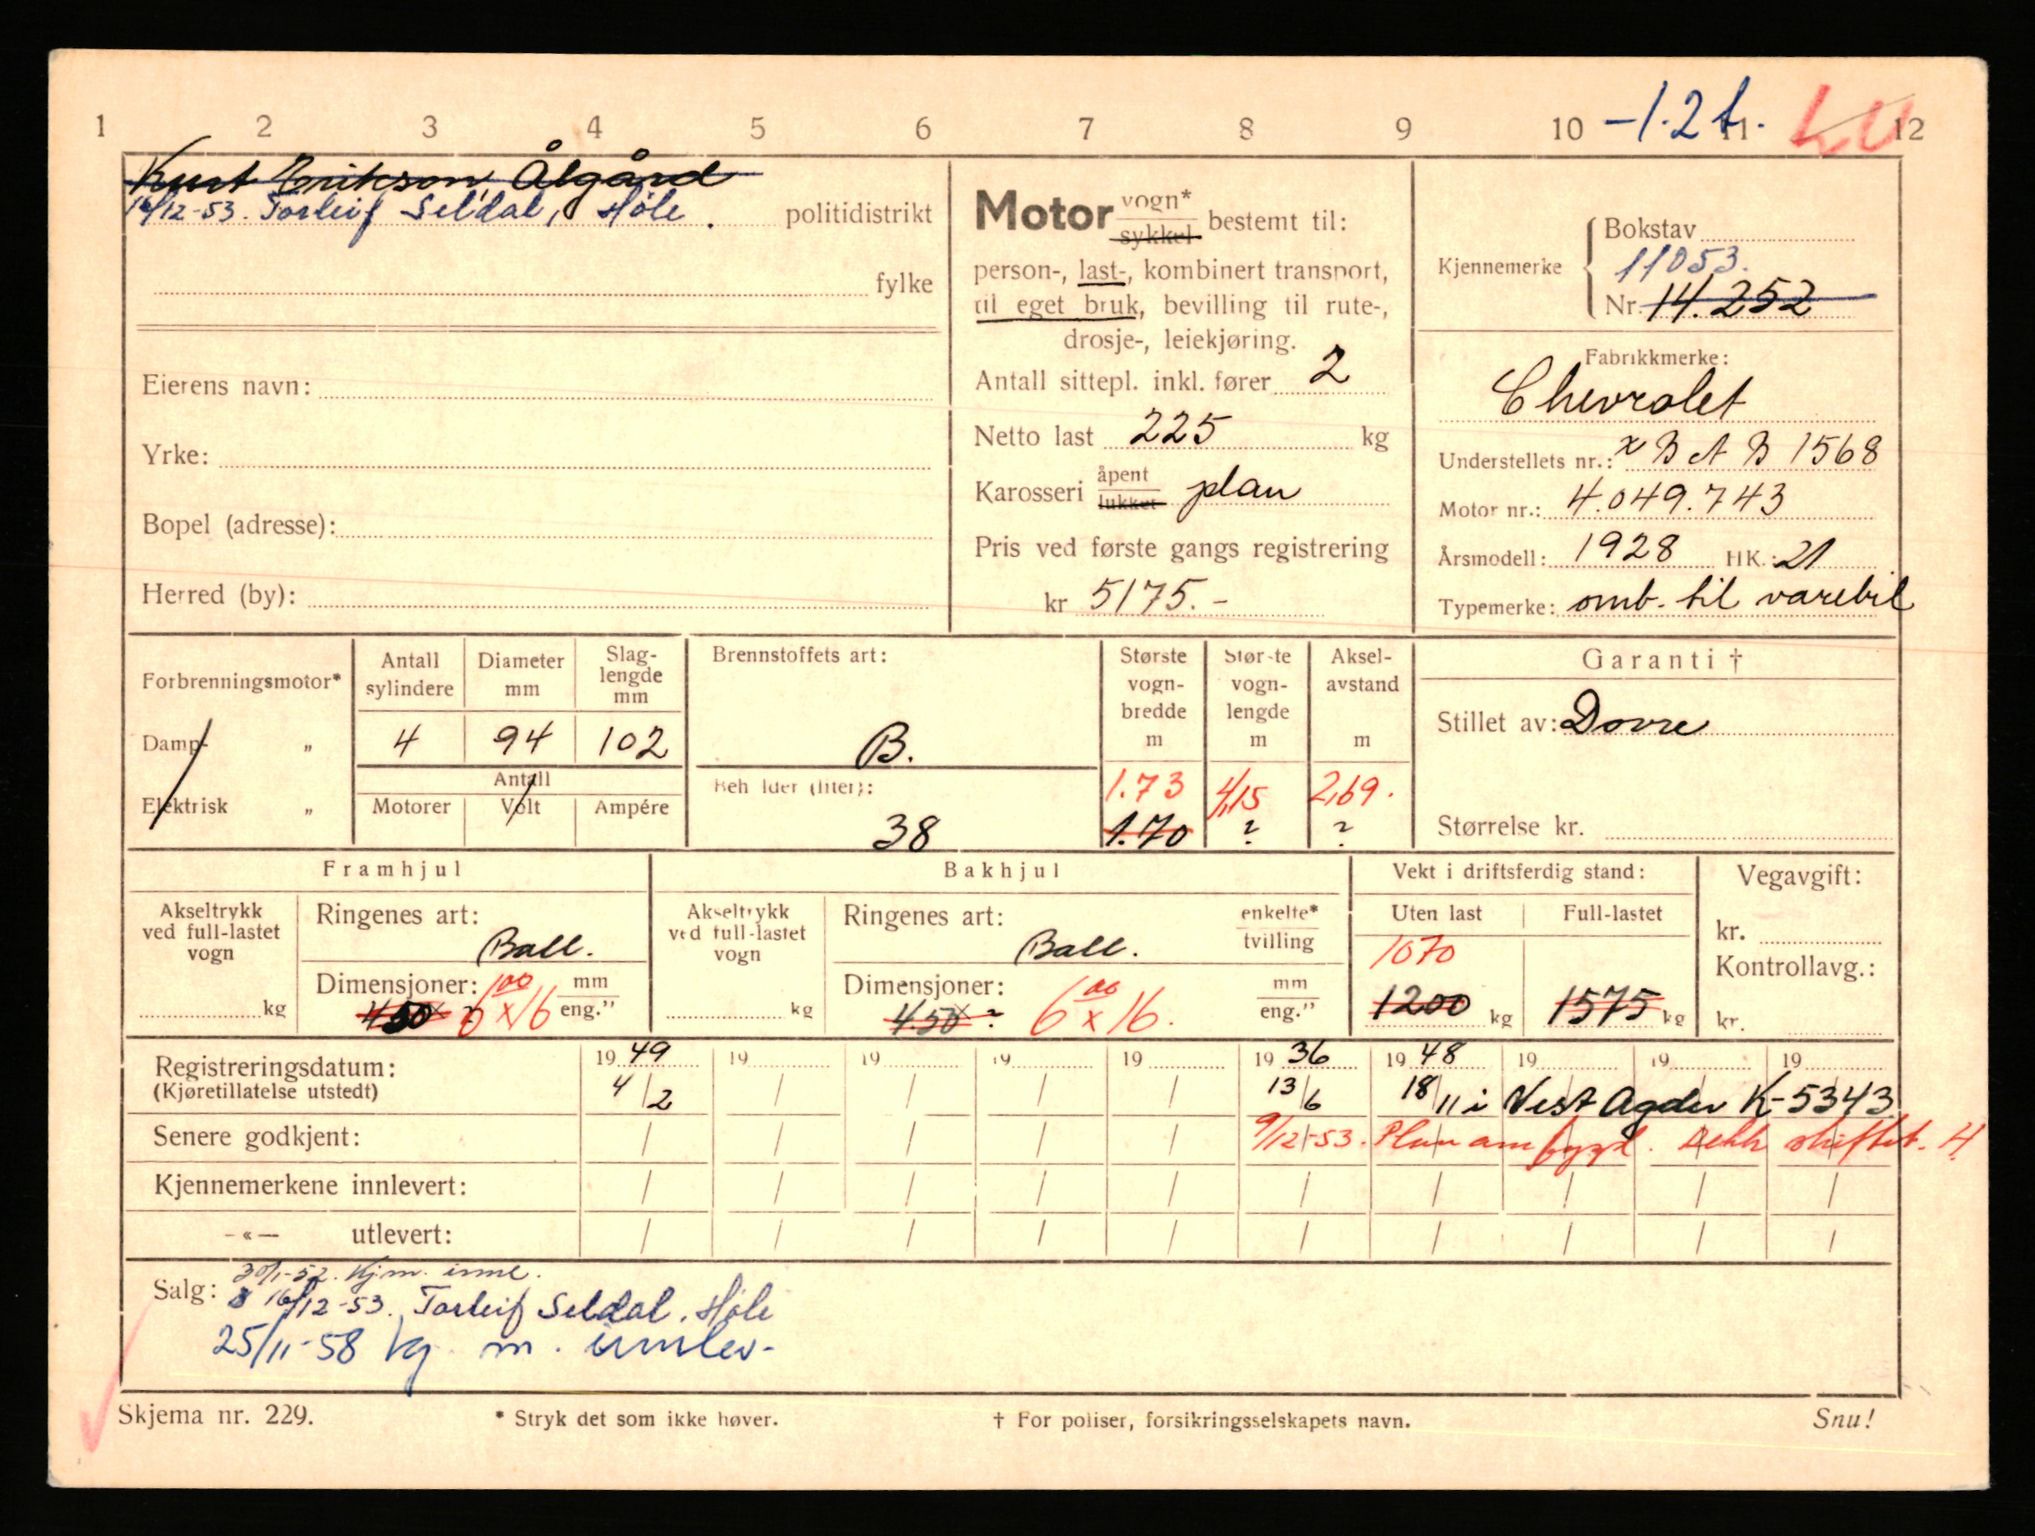 1 2 3 4 5 6 7 8 9 10 -1.2t. 11 12
Kurt Erikson, Ålgård
16/12-53. Torleif Seldal, Høle. politidistrikt
fylke
Eierens navn:
Yrke:
Bopel (adresse):
Herred (by):
Motor vogn* sykkel bestemt til:
person-, last-, kombinert transport,
til eget bruk, bevilling til rute-,
drosje-, leiekjøring.
Antall sittepl. inkl. fører 2
Netto last 225 kg
Karosseri åpent lukket plan
Pris ved første gangs registrering
kr 5175.-
Bokstav
Kjennemerke 11053.
Nr. 14.252
Fabrikkmerke:
Chevrolet
Understellets nr.: x B A B 1568
Motor nr.: 4.049.743
Årsmodell: 1928 HK.: 21
Typemerke: omb. til varebil
Forbrenningsmotor*
Damp- "
Elektrisk "
Antall sylindere
Diameter mm
Slag-lengde mm
4 94 102
Antall
Motorer Volt Ampére
Brennstoffets art:
B.
Beh lder (liter):
38
Største vogn-bredde m
Største vogn-lengde m
Aksel-avstand m
1.73 4,15 2,69.
1.70 ? ?
Garanti †
Stillet av: Dovre
Størrelse kr.
Framhjul
Akseltrykk ved full-lastet vogn
kg
Ringenes art:
Ball.
Dimensjoner: mm eng."
450 x 6 00 x 16
Bakhjul
Akseltrykk ved full-lastet vogn
kg
Ringenes art: enkelte* tvilling
Ball.
Dimensjoner: mm eng."
450 x ? 6 00 x 16.
Vekt i driftsferdig stand:
Uten last Full-lastet
1070
1200 kg 1575 kg
Vegavgift:
kr.
Kontrollavg.:
kr.
Registreringsdatum: 19 49 19 19 19 19 19 36 19 48 19 19 19
(Kjøretillatelse utstedt) 4/2 / / / / 13/6 18/11 i Vest Agder K-5343
Senere godkjent: / / / / / 9/12-53. Plan ombygd. Dekk skiftet. H
Kjennemerkene innlevert: / / / / / / / / / /
-«- utlevert: / / / / / / / / / /
30/1-52. Kjm. innl.
Salg: 16/12-53. Torleif Seldal, Høle
25/11-58 kj. m. innlev-
Skjema nr. 229. * Stryk det som ikke høver. † For poliser, forsikringsselskapets navn. Snu!